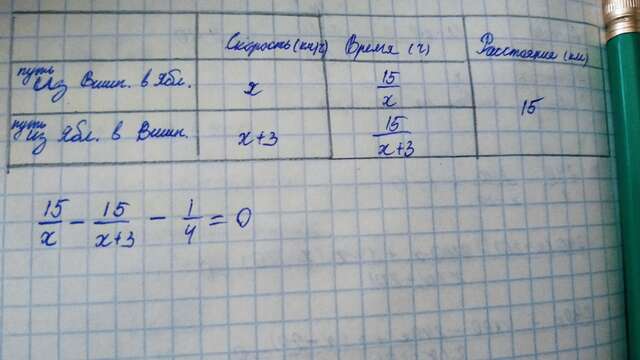 Скорость (км/ч) Время (ч) Расстояние (км)
путь из Вишн. в Ябл. x 15/x 15
путь из Ябл. в Вишн. x+3 15/x+3
15/x − 15/x+3 − 1/4 = 0